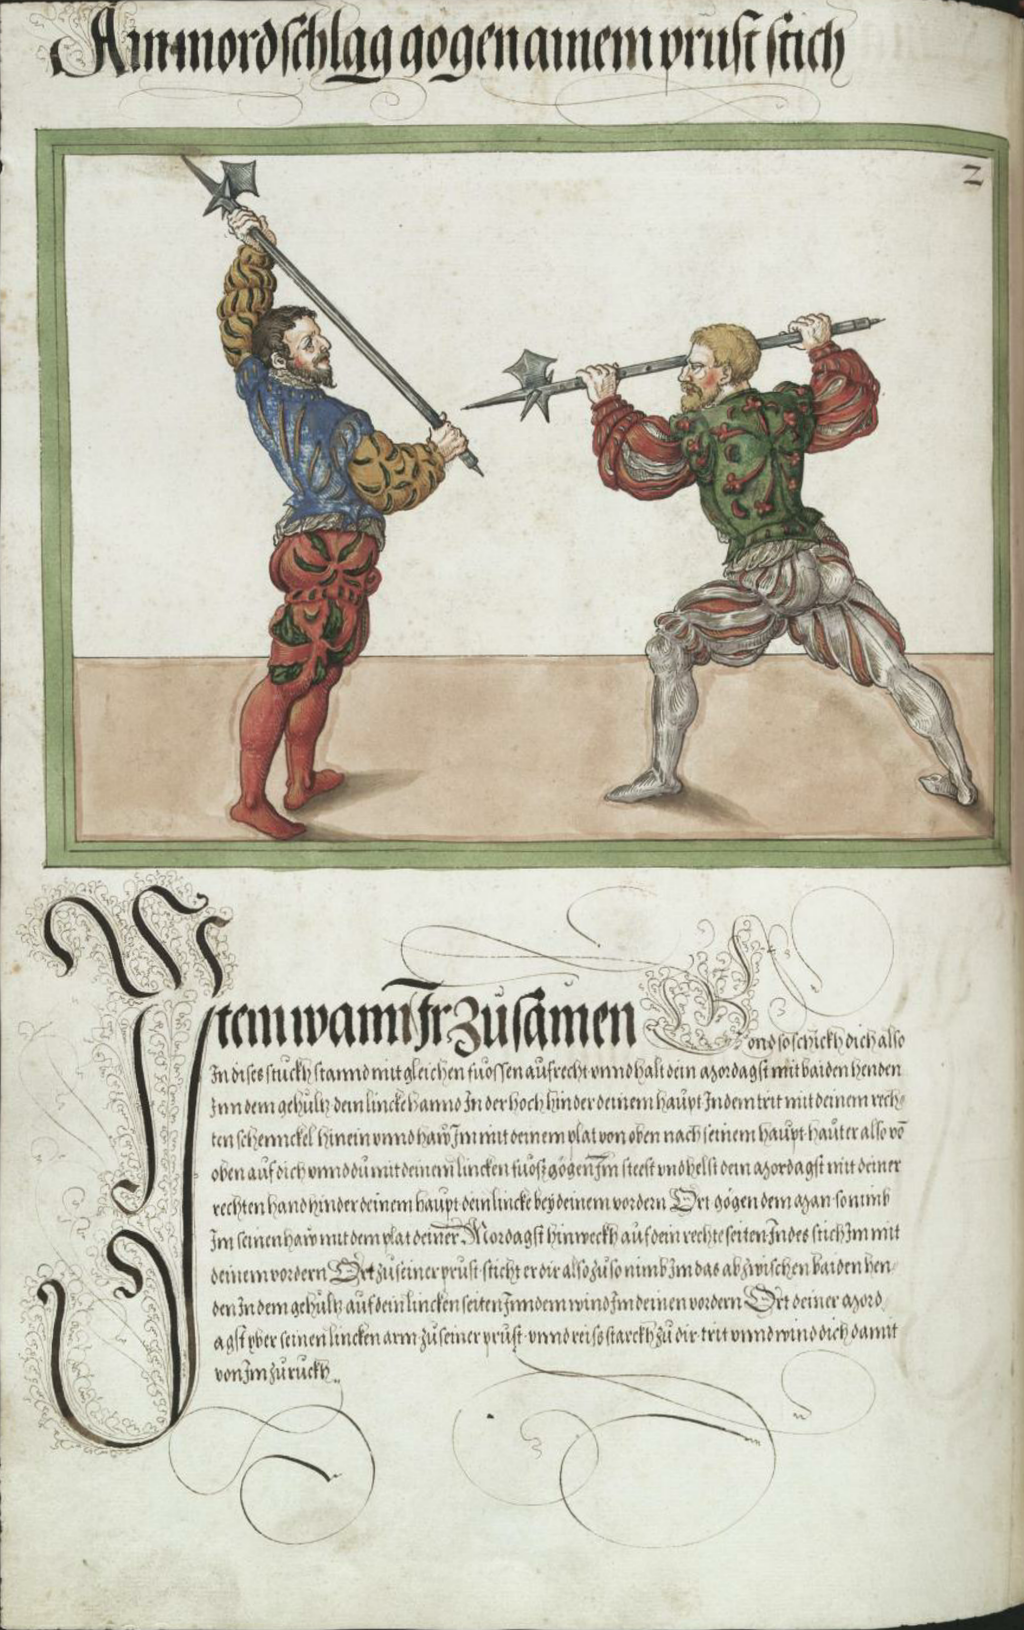 Ain mordschlag gogen ainem prust stich
2
Item wann Ir zu samen
Gond so schickh dich also
In dises stuckh stannd mit gleichen fuossen aufrecht vnnd halt dein mordagst mit baiden henden
Inn dem gehültz dein lincke hannd In der hoch hinder deinem haupt Indem trit mit deinem rech-
ten schennckel hinein vnnd haw Im mit deinem plat von oben nach seinem haupt hauter also võ
oben auf dich vnnd du mit deinem lincken fuosz gögen Im steest vnd helst dein mordagst mit deiner
rechten hand hinder deinem haupt dein lincke bey deinem vordern Ort gögen dem man so nimb
Im seinen haw mit dem plat deiner Mordagst hinweckh auf dein rechte seiten Indes stich Im mit
deinem vordern Ort zu seiner prust sticht er dir also zu so nimb Im das ab zwischen baiden hen-
den In dem gehültz auf dein lincken seiten Inn dem wind Im deinen vordern Ort deiner mord
agst yber seinen lincken arm zu seiner prust vnnd reis starckh zu dir trit vnnd wind dich damit
von Im zu ruckh